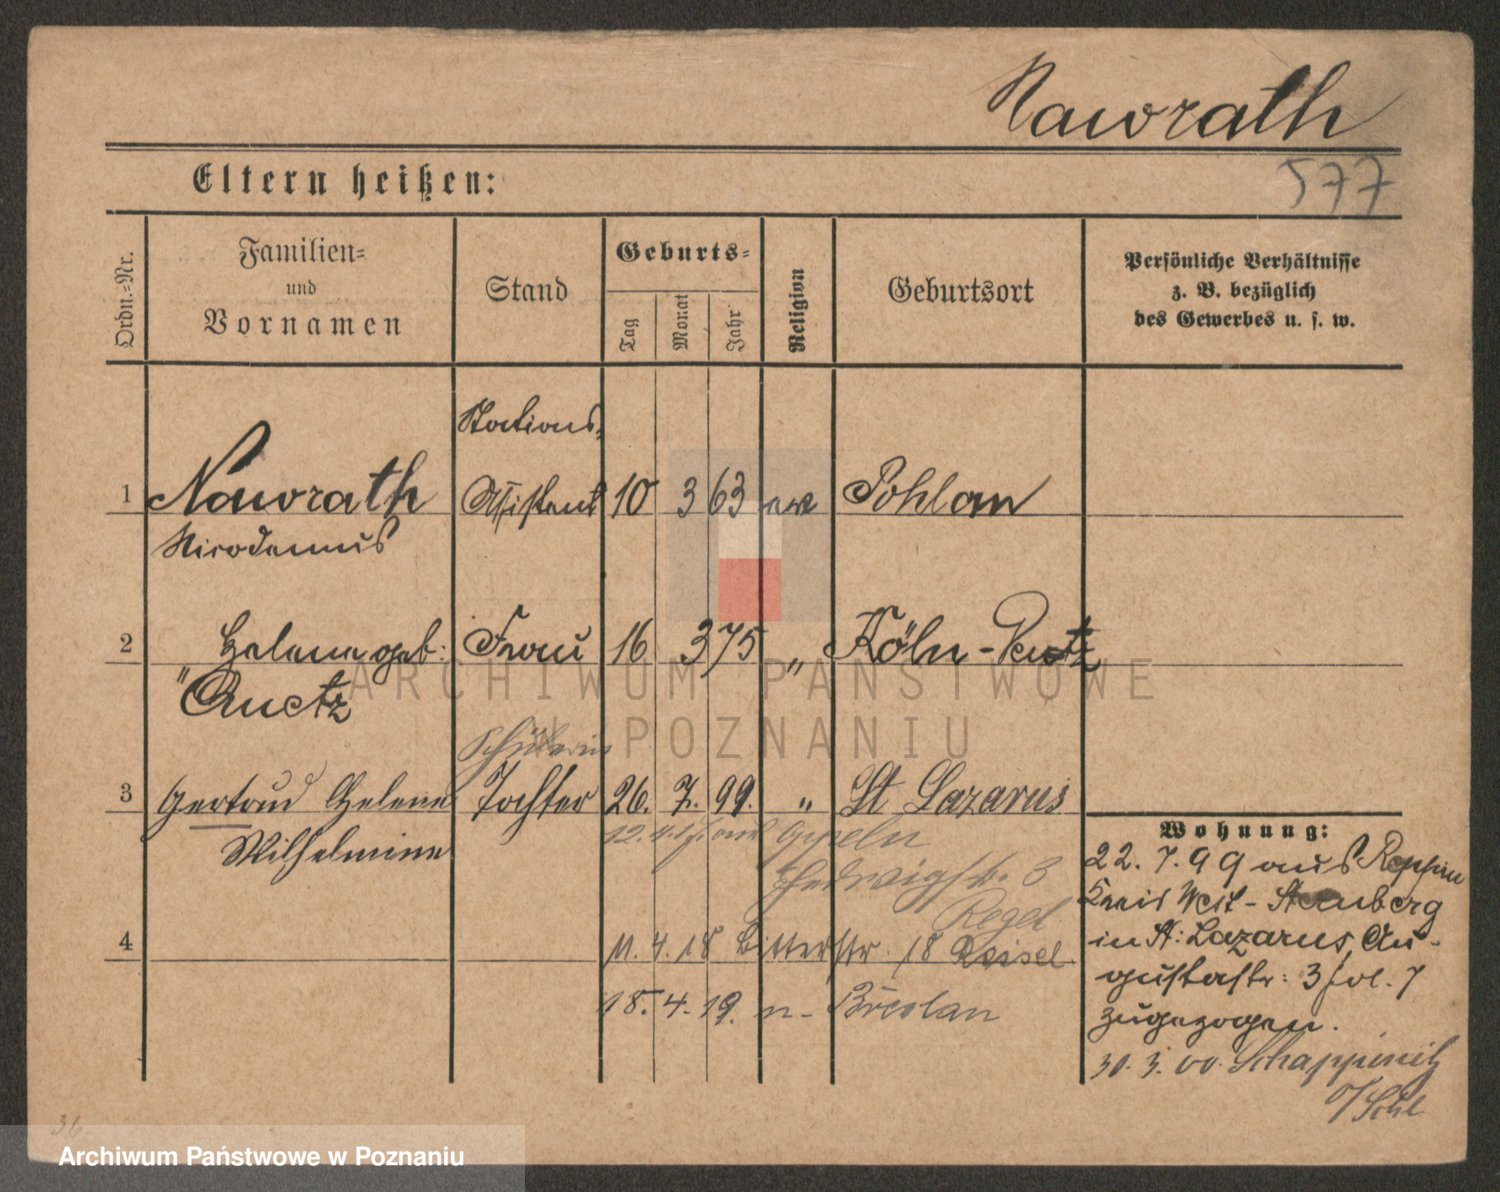 Nawrath
577
Eltern heißen:
Ordn.-Nr.
Familien-
und
Vornamen
Stand
Geburts-
Tag
Monat
Jahr
Religion
Geburtsort
Persönliche Verhältnisse
z. B. bezüglich
des Gewerbes u. s. w.
Stations-
1 Nawrath Assistent 10 3 63 ev Pohlau
Nicodemus
2 Helene geb: Frau 16 3 75 " Köln-Deutz
" Quetz
Schülerin
3 Gertrud Helene Tochter 26. 7. 99. " St Lazarus
Wilhelmine
12. 4. Oppeln
Hedwigstr. 3
Regel
4 11. 4. 18 Ritterstr. 18 Reisel
18. 4. 19. n- Breslau
Wohnung:
22. 7. 99 aus Reppen
Kreis West-Sternberg
in St: Lazarus, Au-
gustastr: 3 fol. 7
zugezogen.
30. 3. 00. Schoppinitz
O/Schl
36.
ARCHIWUM PAŃSTWOWE
W POZNANIU
Archiwum Państwowe w Poznaniu